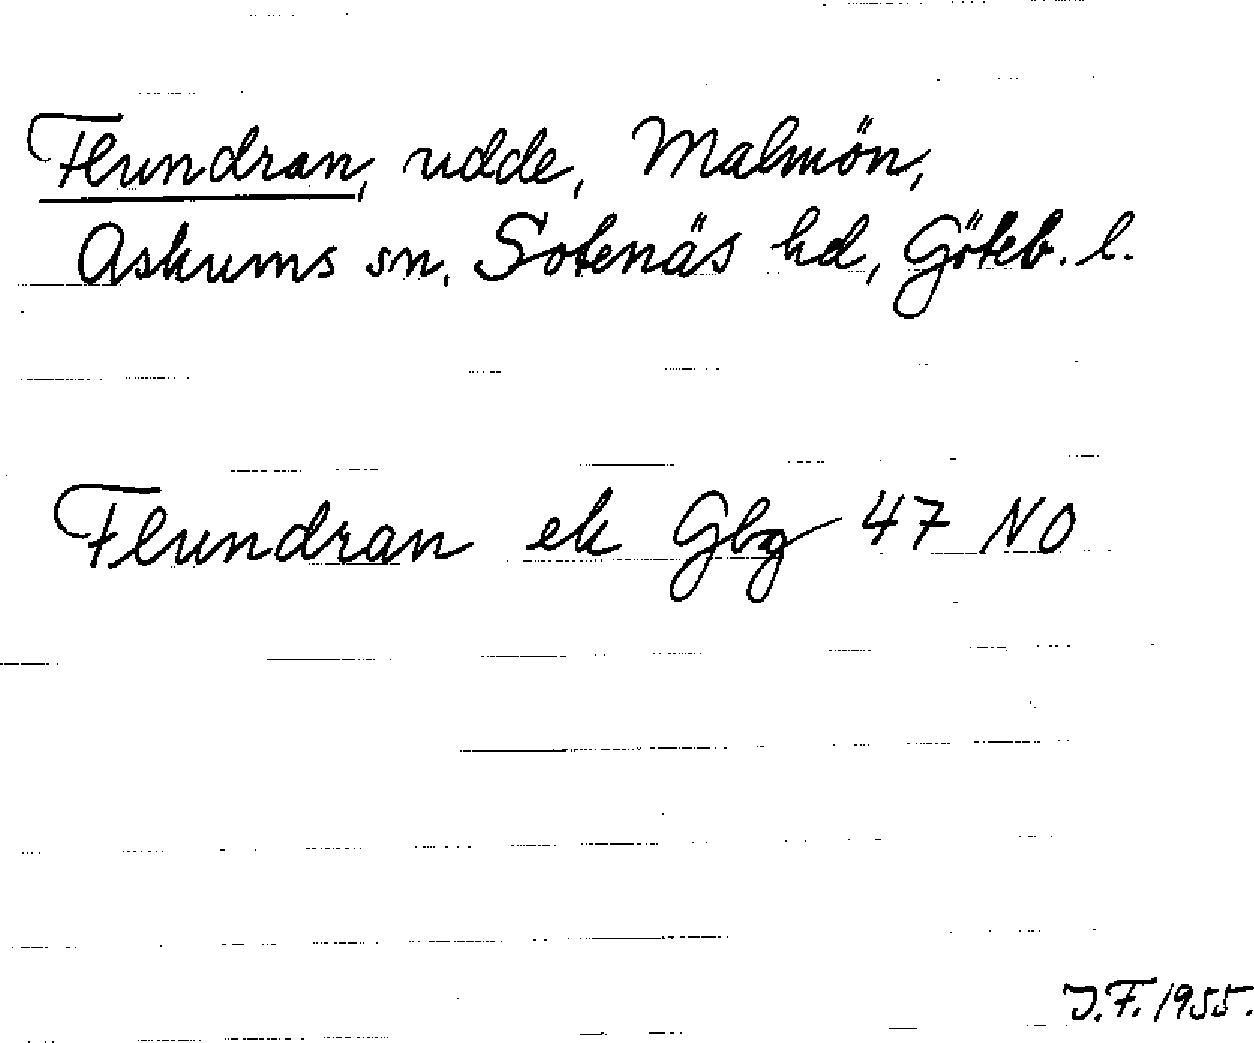 Flundran, udde, Malmön,
Askums sn, Sotenäs hd, Göteb. l.
Flundran ek Gbg 47 NO
J.F. 1955.